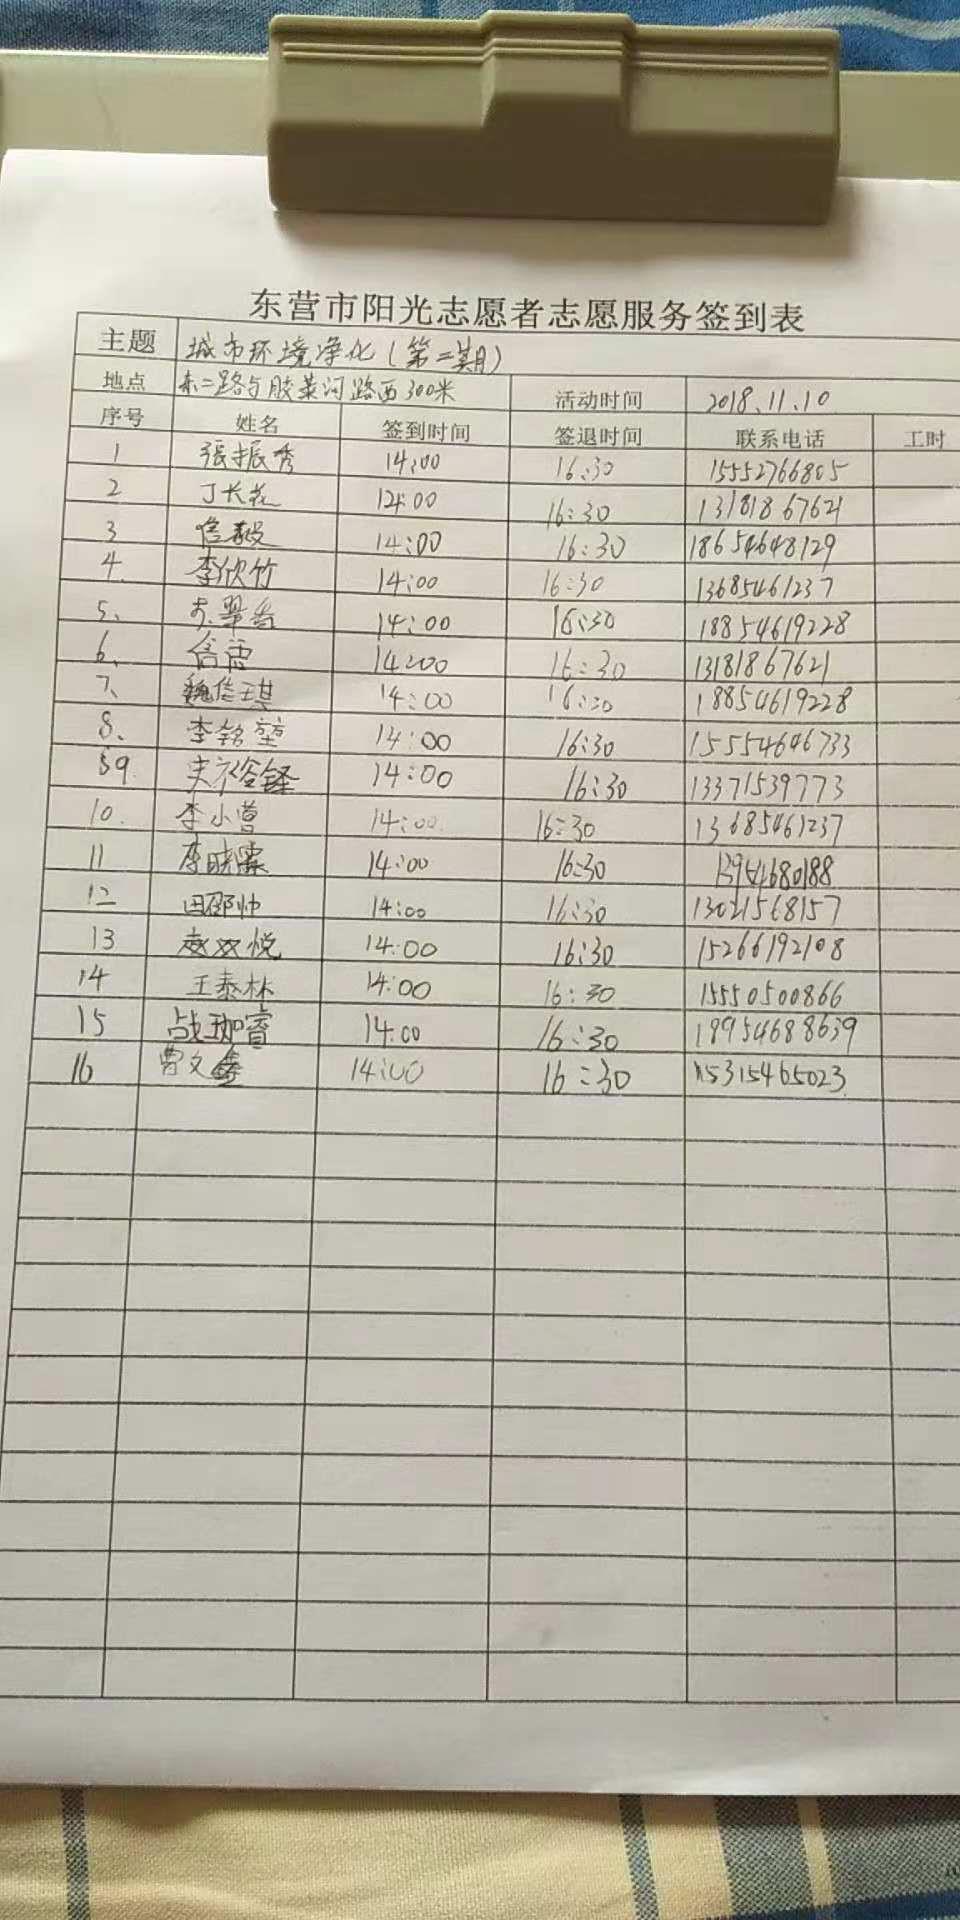 东营市阳光志愿者志愿服务签到表
主题 城市环境净化(第二期)
地点 东二路与胶莱河路西300米 活动时间 2018.11.10
序号 姓名 签到时间 签退时间 联系电话 工时
1 張振秀 14:00 16:30 15552766805
2 丁长花 14:00 16:30 13181867621
3 信毅 14:00 16:30 18654648129
4. 李欣竹 14:00 16:30 13685461237
5、 14:00 16:30 18854619228
6、 信诺 14:00 16:30 13181867621
7、 魏信琪 14:00 16:30 18854619228
8、 李铭堃 14:00 16:30 15554646733
9. 14:00 16:30 13371539773
10. 李小营 14:00 16:30 13685461237
11 李晓霖 14:00 16:30 13954680188
12 田邵帅 14:00 16:30 13021568157
13 赵双悦 14:00 16:30 15266192108
14 王泰林 14:00 16:30 15550500866
15 战珈睿 14:00 16:30 18954688639
16 曹文鑫 14:00 16:30 15315465023